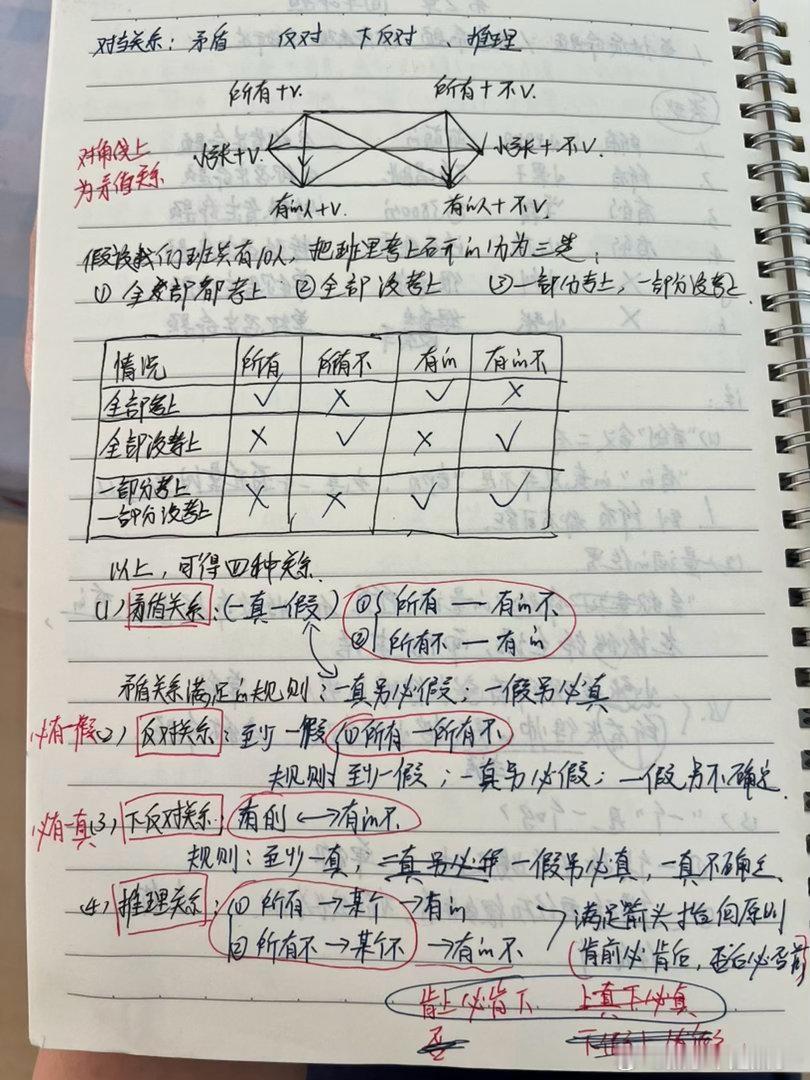 对当关系：矛盾 反对 下反对 、推理
所有+V. 所有+不V.
对角线上
为矛盾关系
小张+V. 小张+不V.
有的人+V. 有的人+不V.
假设我们班共有10人，把班里考上公务员的分为三类：
① 全部都考上 ②全部没考上 ③一部分考上，一部分没考上.
情况 所有 所有不 有的 有的不
全部考上 ✓ × ✓ ×
全部没考上 × ✓ × ✓
一部分考上
一部分没考上 × × ✓ ✓
以上，可得四种关系.
(1) 矛盾关系：(一真一假) ① 所有 — 有的不
② 所有不 — 有的
矛盾关系满足的规则：一真另必假；一假另必真
必有一假 (2) 反对关系：至少一假 ①所有—所有不
规则：至少一假；一真另必假；一假另不确定.
必有一真 (3) 下反对关系：有的⟷有的不
规则：至少一真，一假另必真，一真不确定.
(4) 推理关系：① 所有→某个→有的
② 所有不→某个不→有的不
满足箭头指向原则
(肯前必肯后，否后必否前)
肯上必肯下 上真下必真